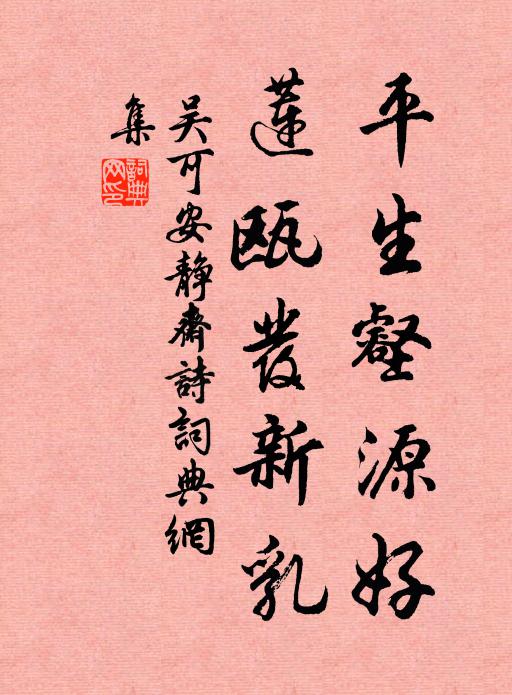 平生壑源好
蓮甌發新乳
吴可安靜齋詩詞典網
集
詞典网印